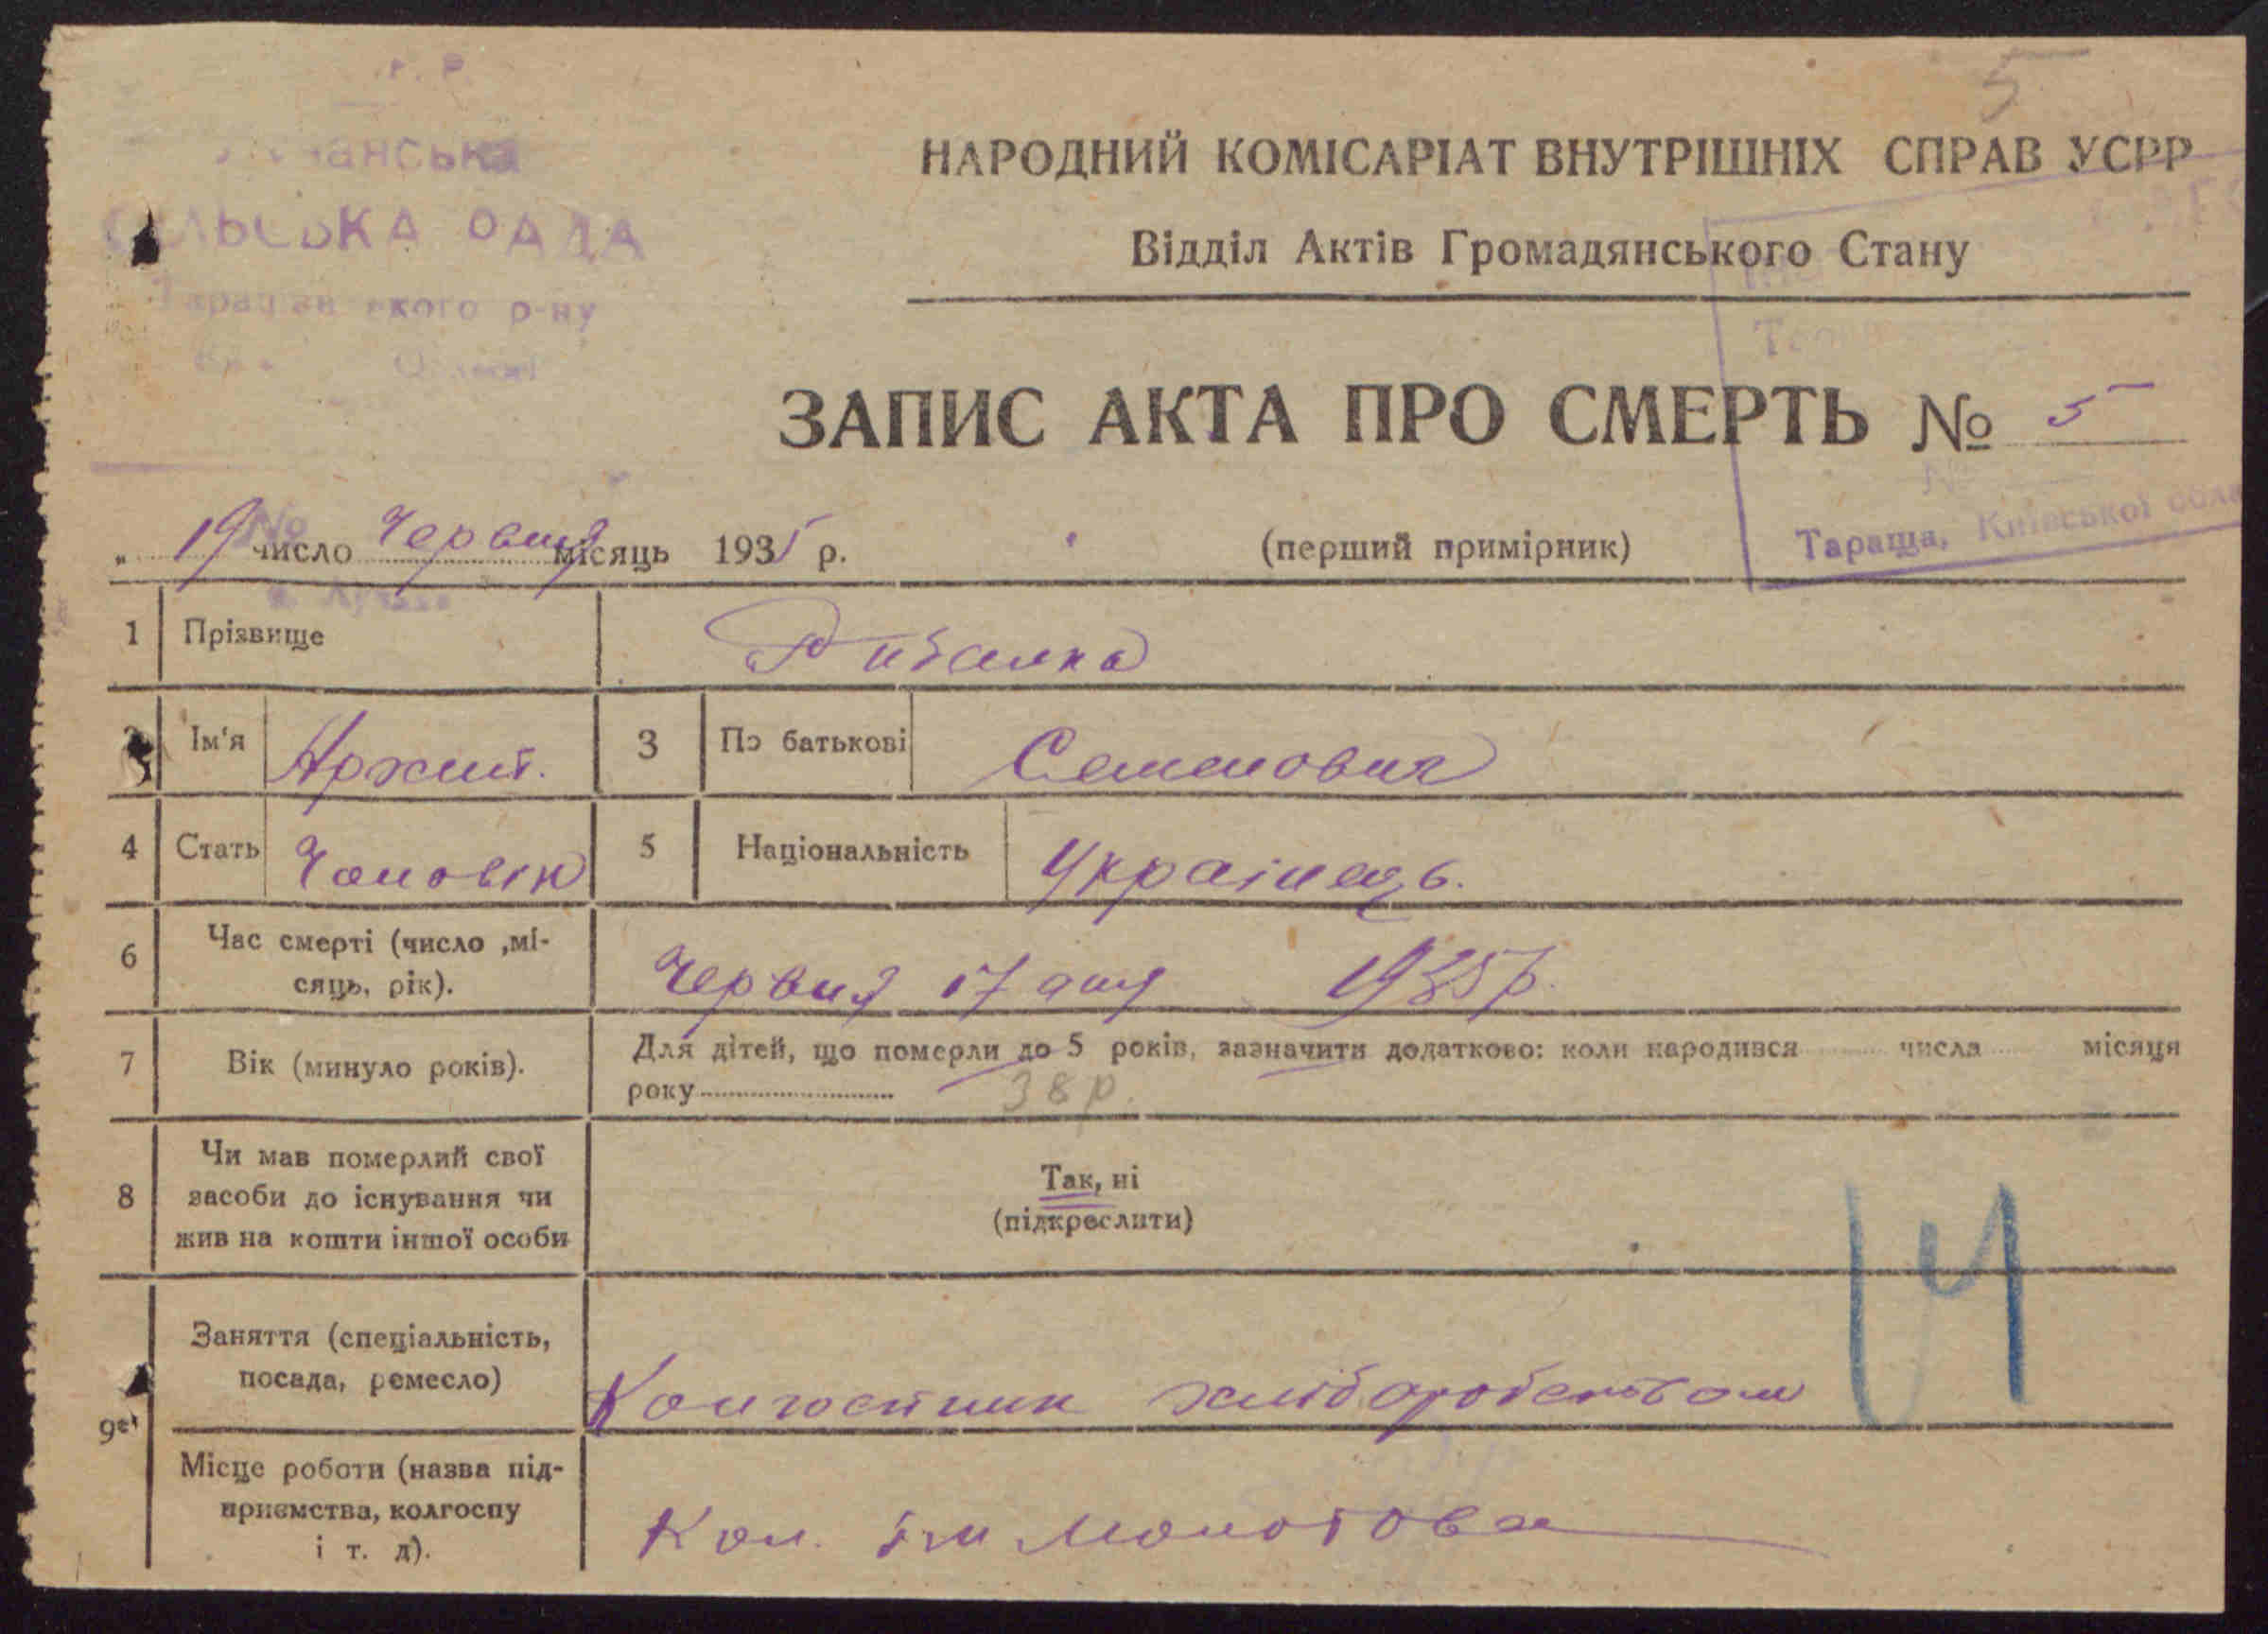 5
НАРОДНИЙ КОМІСАРІАТ ВНУТРІШНІХ СПРАВ УСРР
Відділ Актів Громадянського Стану
СІЛЬСЬКА РАДА
р-ну
ЗАПИС АКТА ПРО СМЕРТЬ № 5
Тараща, Київської
„ 19 число Червня місяць 1935 р. (перший примірник)
1 Прізвище Рибалка
2 Ім'я Архип. 3 По батькові Семенович
4 Стать Чоловік 5 Національність Українець.
6 Час смерті (число ,мі-
сяць, рік). Червня 17 дня 1935 р.
7 Вік (минуло років). Для дітей, що померли до 5 років, зазначити додатково: коли народився числа місяця
року 38 р.
8 Чи мав померлий свої
засоби до існування чи
жив на кошти іншої особи
Так, ні
(підкреслити)
14
Заняття (спеціальність,
посада, ремесло) Колгоспник хліборобством
9
Місце роботи (назва під-
приємства, колгоспу
і т. д). Кол. ім Молотова